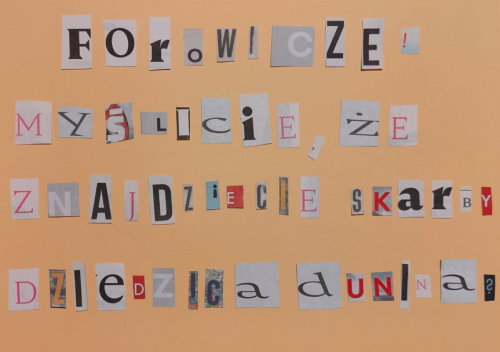 FOrOWICZE!
MYŚLICIE, ŻE
ZNAJDZiECIE SKarBY
DZIeDZICa dUNINa?